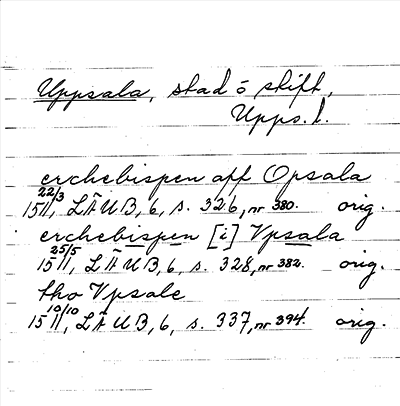 Uppsala, stad o stift,
Upps. l.
erchebispen aff Opsala
15 22/3 11, LÄUB, 6, s. 326, nr 380. orig.
erchebispen [i] Vpsala
15 25/5 11, LÄUB, 6, s. 328, nr 382. orig.
tho Vpsale
15 10/10 11, LÄUB, 6, s. 337, nr 394. orig.